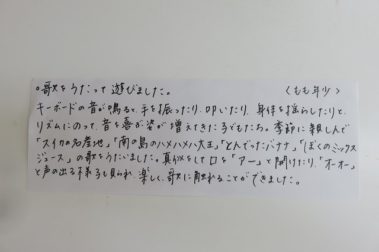 ○歌をうたって遊びました。 〈もも年少〉
キーボードの音が鳴ると、手を振ったり、叩いたり、身体を揺らしたりと、
リズムにのって、音を喜ぶ姿が増えてきた子どもたち。季節に親しんで
「スイカの名産地」「南の島のハメハメハ大王」「とんでったバナナ」「ぼくのミックス
ジュース」の歌をうたいました。真似をして口を「アー」と開けたり、「オーオー」
と声の出る様子も見られ、楽しく、歌に触れることができました。